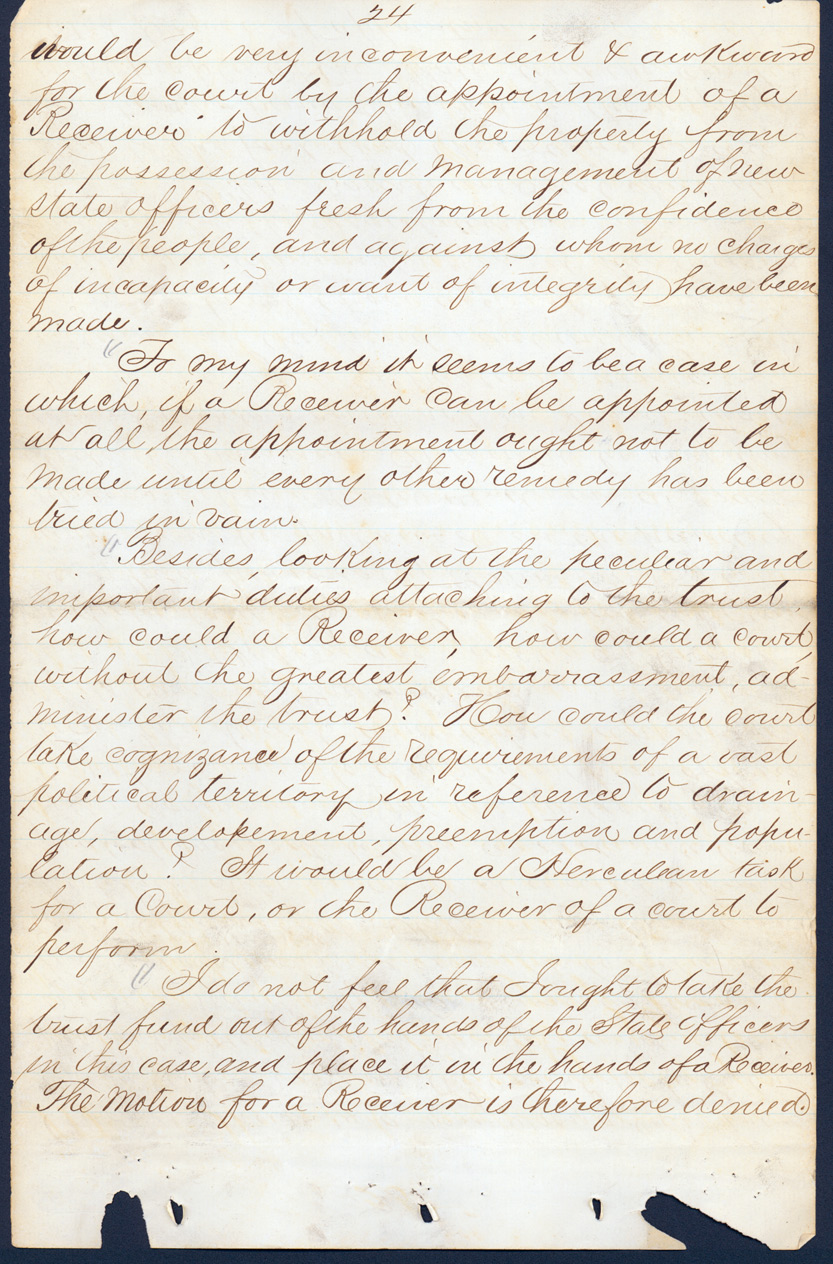 24
would be very inconvenient & awkward
for the court by the appointment of a
Receiver to withhold the property from
the possession and management of new
state officers fresh from the confidence
of the people, and against whom no charges
of incapacity or want of integrity have been
made.
"To my mind it seems to be a case in
which, if a Receiver can be appointed
at all, the appointment ought not to be
made until every other remedy has been
tried in vain.
"Besides, looking at the peculiar and
important duties attaching to the trust,
how could a Receiver, how could a court,
without the greatest embarrassment, ad-
minister the trust? How could the court
take cognizance of the requirements of a vast
political territory in reference to drain-
age, developement, preemption and popu-
lation? It would be a Herculean task
for a Court, or the Receiver of a court to
perform.
"I do not feel that I ought to take the
trust fund out of the hands of the State officers
in this case, and place it in the hands of a Receiver.
The Motion for a Receiver is therefore denied.